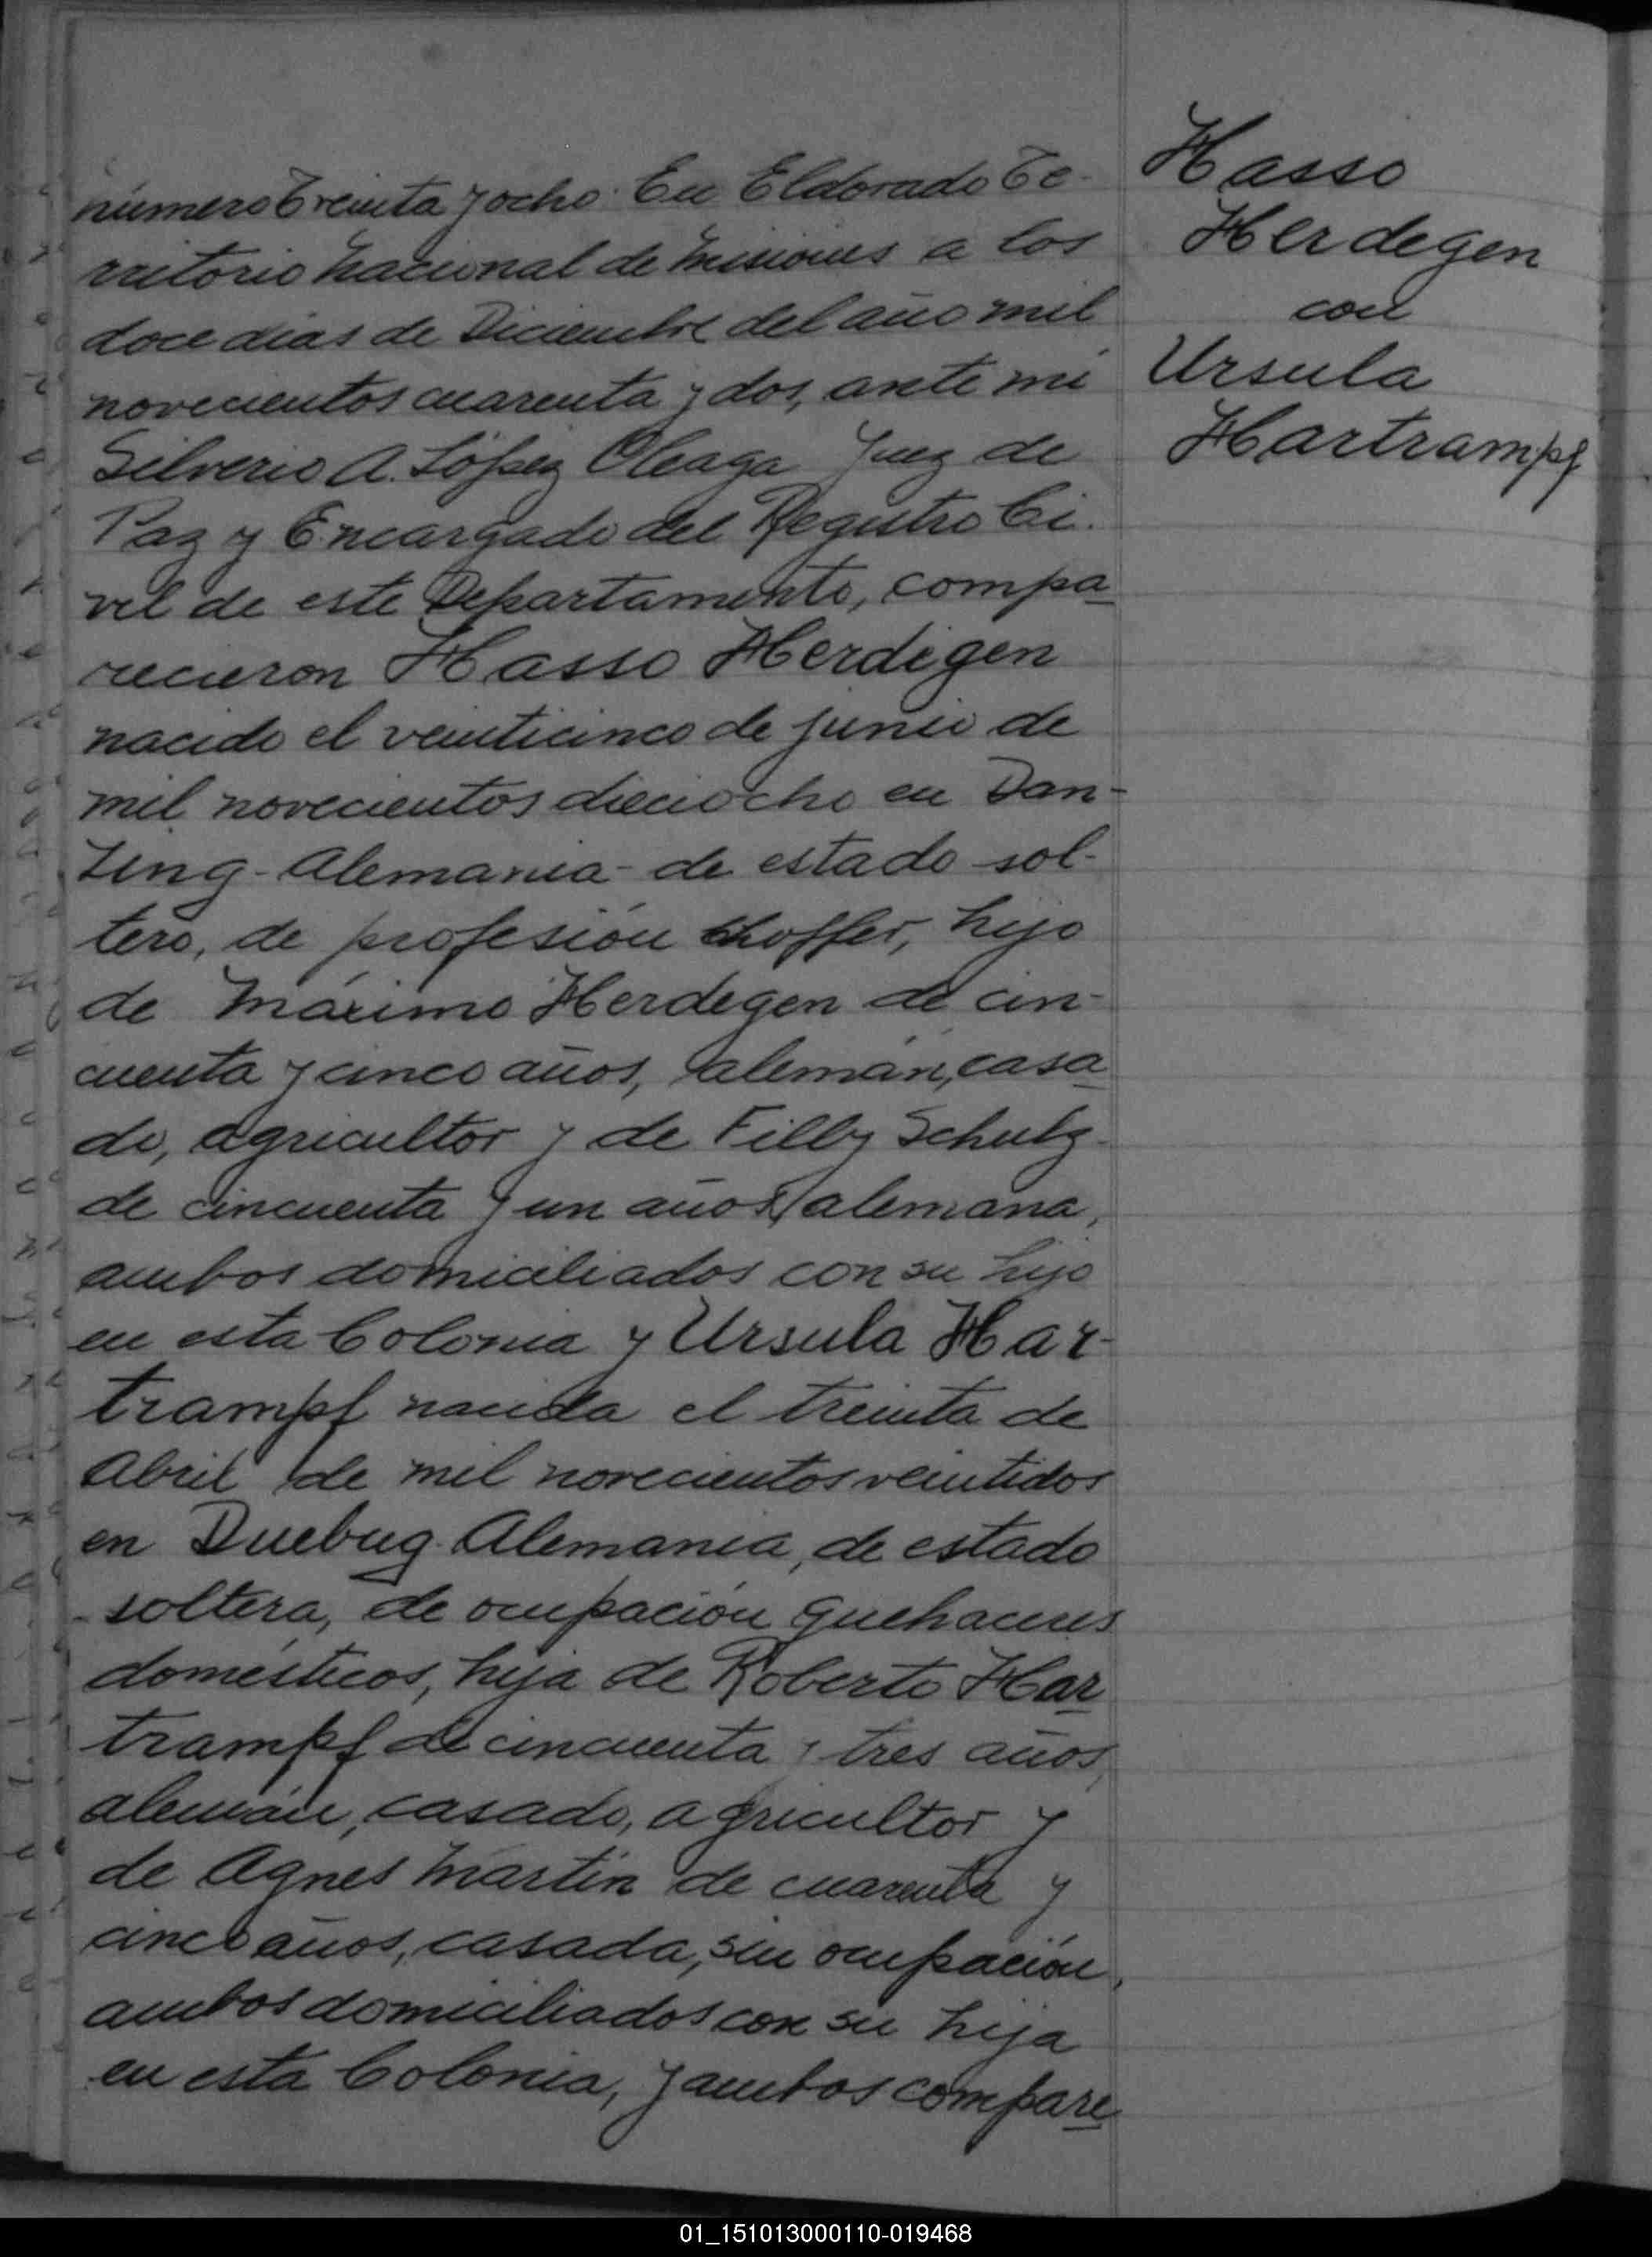 número Treinta y ocho. En Eldorado Te-
rritorio Nacional de Misiones a los
doce dias de Diciembre del año mil
novecientos cuarenta y dos, ante mi
Silverio A. López Oleaga Juez de
Paz y Encargado del Registro Ci-
vil de este Departamento, compa
recieron Hasso Herdigen
nacido el veinticinco de junio de
mil novecientos dieciocho en Dan-
zing-Alemania- de estado sol-
tero, de profesión choffer, hijo
de Máximo Herdegen de cin-
cuenta y cinco años, alemán, casa
do, agricultor y de Filly Schulz
de cincuenta y un años, alemana,
ambos domiciliados con su hijo
en esta Colonia y Ursula Har-
trampf nacida el treinta de
Abril de mil novecientos veintidos
en Duebug-Alemania, de estado
soltera, de ocupación quehaceres
domésticos, hija de Roberto Har
trampf de cincuenta y tres años,
alemán, casado, agricultor y
de Agnes Martin de cuarenta y
cinco años, casada, sin ocupación,
ambos domiciliados con su hija
en esta Colonia, y ambos compare
Hasso
Herdegen
con
Ursula
Hartrampf
01_151013000110-019468